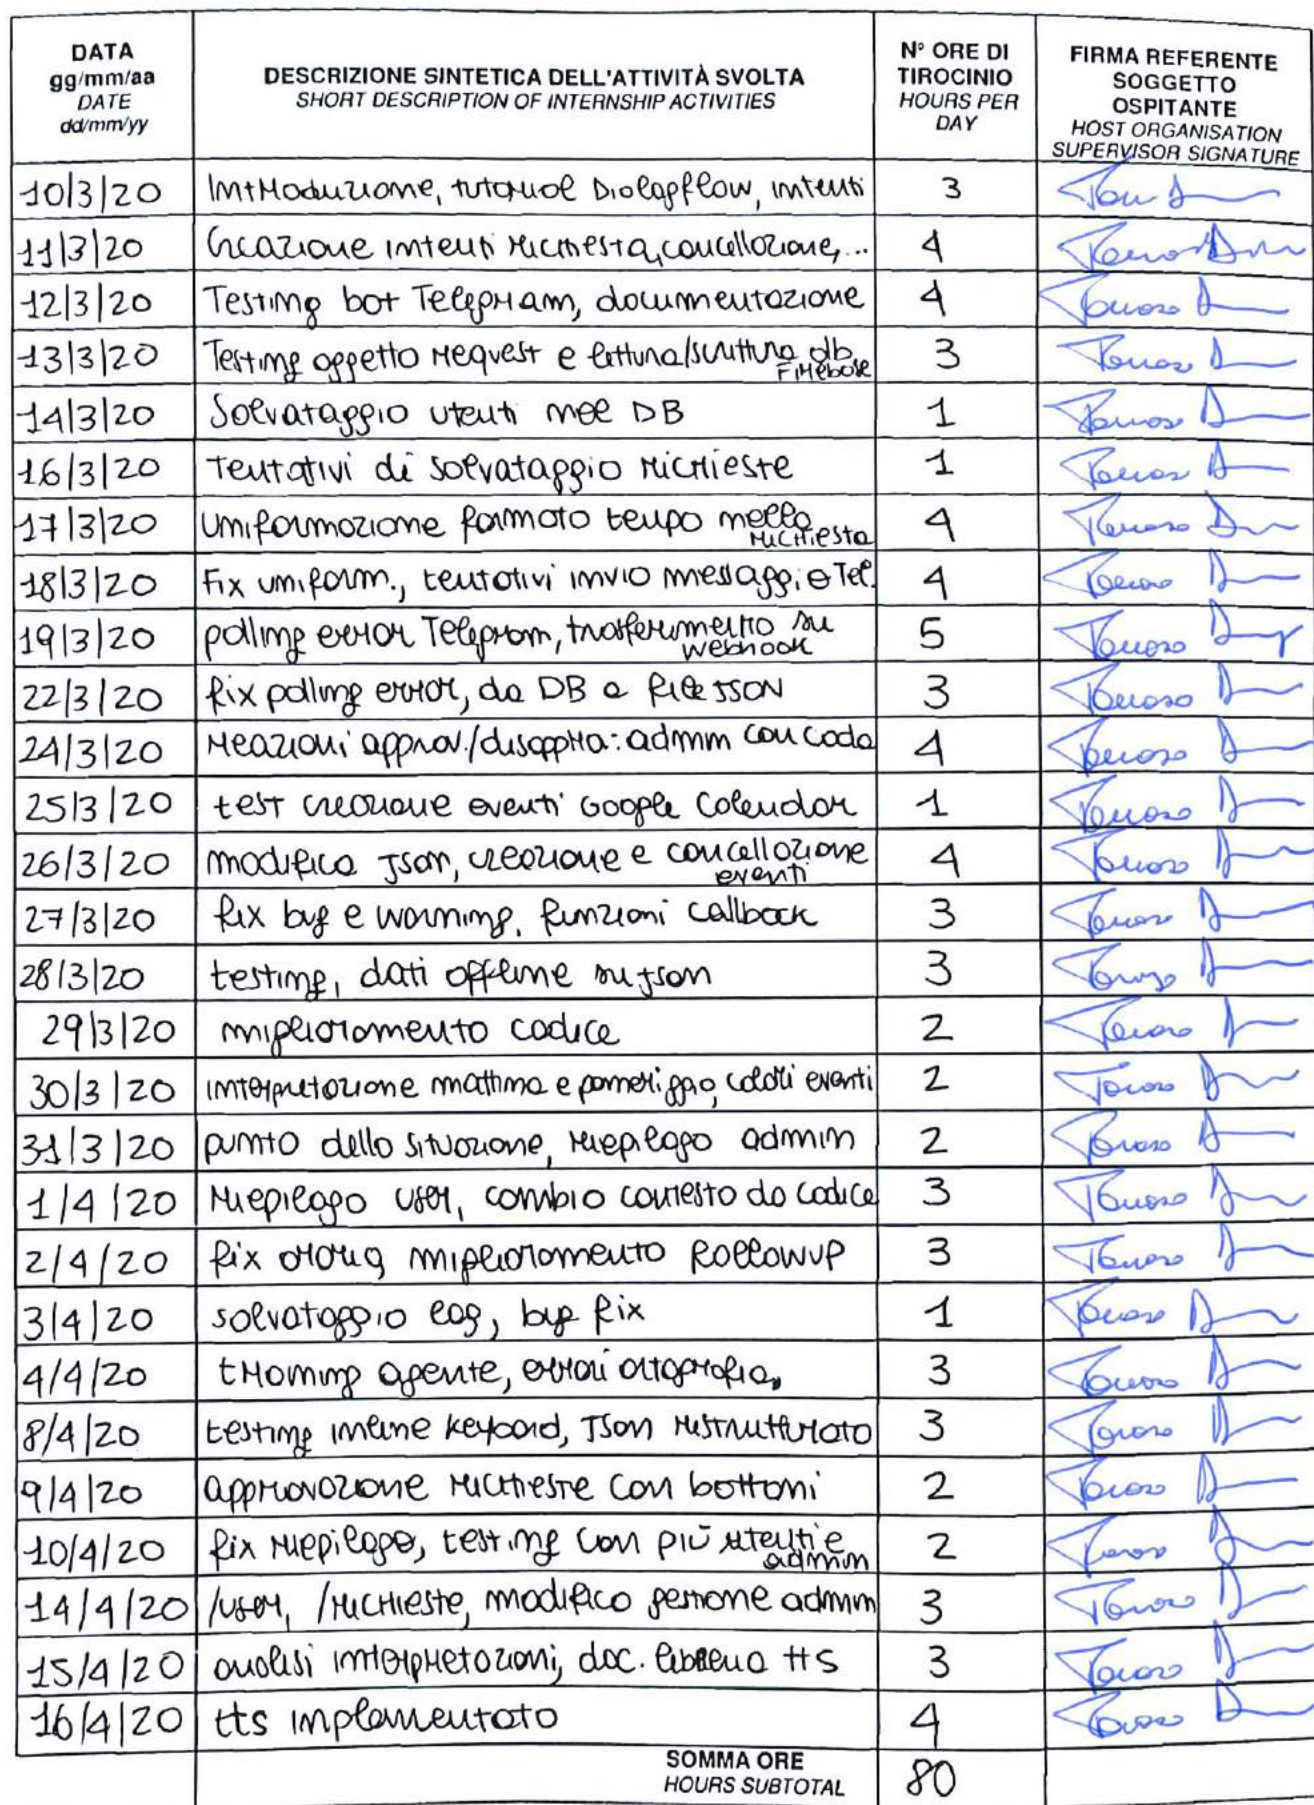 DATA
gg/mm/aa
DATE
dd/mm/yy
DESCRIZIONE SINTETICA DELL'ATTIVITÀ SVOLTA
SHORT DESCRIPTION OF INTERNSHIP ACTIVITIES
N° ORE DI
TIROCINIO
HOURS PER
DAY
FIRMA REFERENTE
SOGGETTO
OSPITANTE
HOST ORGANISATION
SUPERVISOR SIGNATURE
10/3/20 Introduzione, tutorial Dialogflow, intenti 3
11/3/20 Creazione intenti richiesta, cancellazione,... 4
12/3/20 Testing bot Telegram, documentazione 4
13/3/20 Testing oggetto request e lettura/scrittura db Firebase 3
14/3/20 Salvataggio utenti nel DB 1
16/3/20 Tentativi di salvataggio richieste 1
17/3/20 Uniformazione formato tempo nella richiesta 4
18/3/20 Fix uniform., tentativi invio messaggio Tel. 4
19/3/20 polling error Telegram, trasferimento su webhook 5
22/3/20 fix polling error, da DB a file JSON 3
24/3/20 reazioni approv./disappro: admin con coda 4
25/3/20 test creazione eventi Google Calendar 1
26/3/20 modifica Json, creazione e cancellazione eventi 4
27/3/20 fix bug e warning, funzioni callback 3
28/3/20 testing, dati offline su json 3
29/3/20 miglioramento codice 2
30/3/20 interpretazione mattina e pomeriggio, colori eventi 2
31/3/20 punto della situazione, riepilogo admin 2
1/4/20 riepilogo user, cambio contesto da codice 3
2/4/20 fix orario, miglioramento followup 3
3/4/20 salvataggio log, bug fix 1
4/4/20 training agente, errori ortografia, 3
8/4/20 testing inline keyboard, Json ristrutturato 3
9/4/20 approvazione richieste con bottoni 2
10/4/20 fix riepilogo, testing con più utenti e admin 2
14/4/20 /user, /richieste, modifica gestione admin 3
15/4/20 analisi interpretazioni, doc. libreria tts 3
16/4/20 tts implementato 4
SOMMA ORE
HOURS SUBTOTAL
80